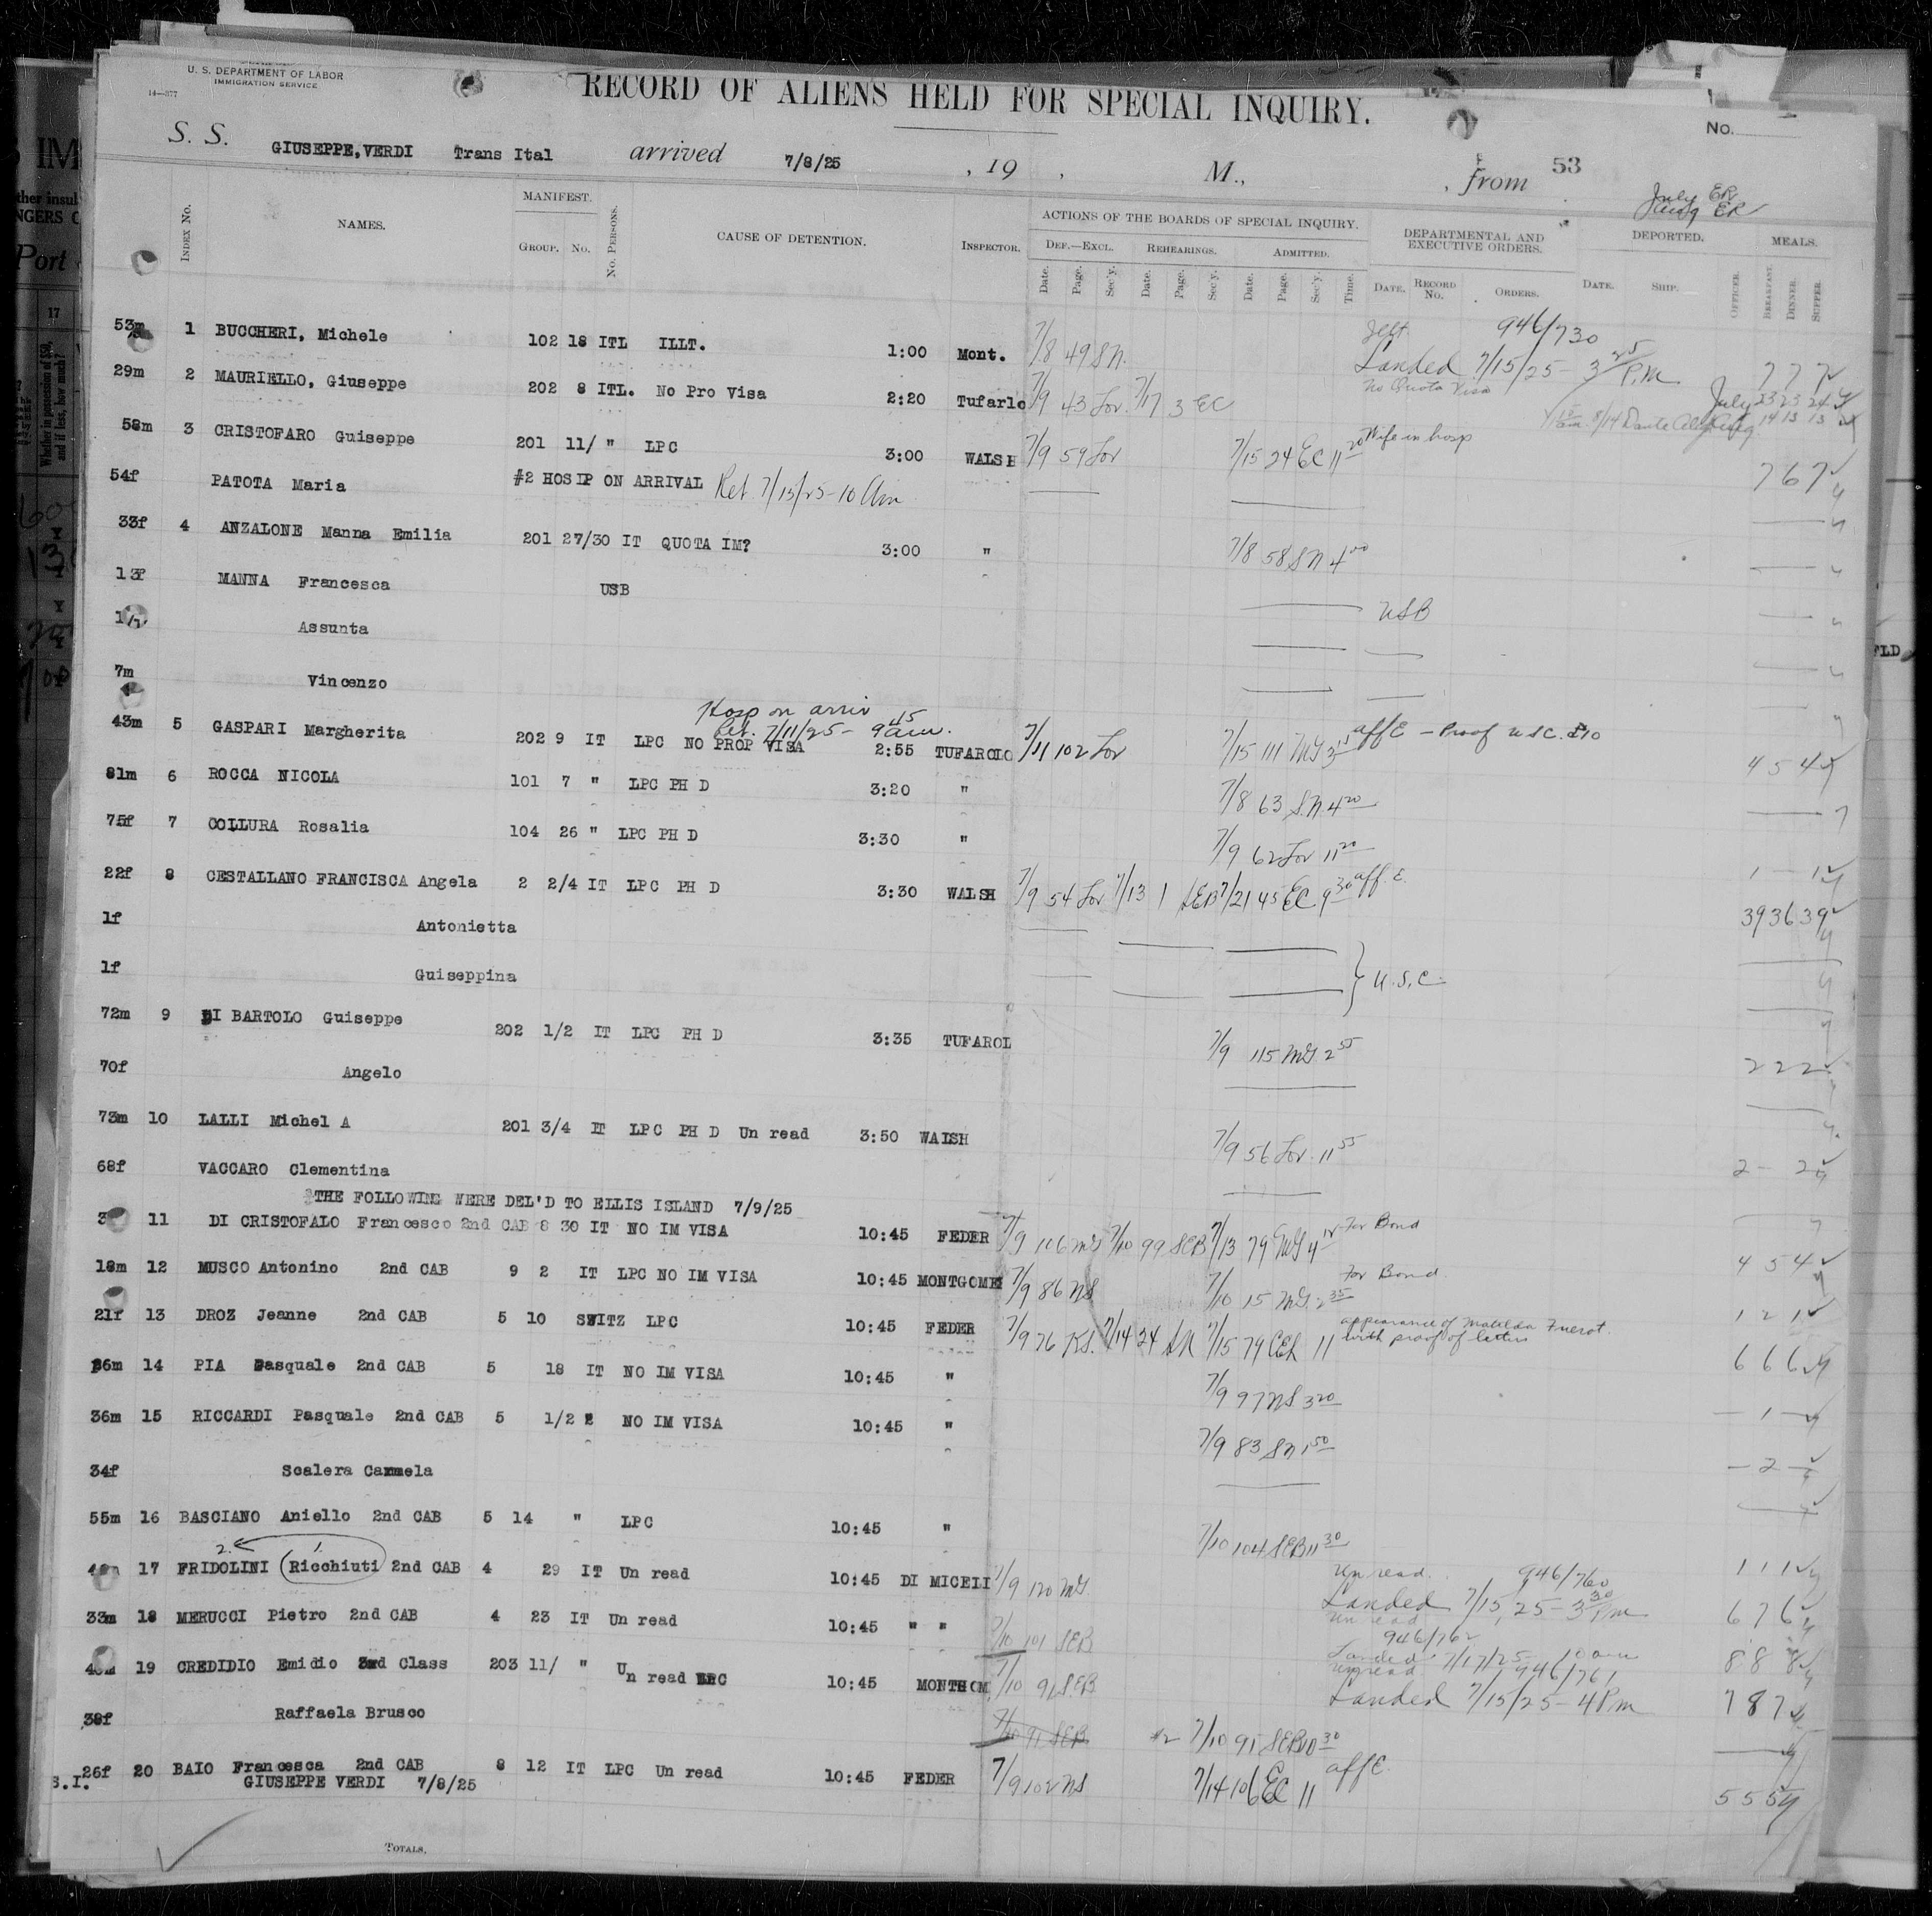 U. S. DEPARTMENT OF LABOR
IMMIGRATION SERVICE
14—377
RECORD OF ALIENS HELD FOR SPECIAL INQUIRY.
No.
S. S. GIUSEPPE,VERDI Trans Ital arrived 7/8/25 , 19 , M., , from 53
July ER
Aug ER
INDEX No. NAMES. MANIFEST. GROUP. No. No. PERSONS. CAUSE OF DETENTION. INSPECTOR.
ACTIONS OF THE BOARDS OF SPECIAL INQUIRY. DEPARTMENTAL AND EXECUTIVE ORDERS. DEPORTED. MEALS.
DEF.—EXCL. REHEARINGS. ADMITTED.
Date. Page. Sec'y. Date. Page. Sec'y. Date. Page. Sec'y. Time. DATE. RECORD No. ORDERS. DATE. SHIP. OFFICER. BREAKFAST. DINNER. SUPPER.
53m 1 BUCCHERI, Michele 102 18 ITL ILLT. 1:00 Mont. 7/8 49 SN. 946/730
Landed 7/15/25 - 3 25 P.M 7 7 7
29m 2 MAURIELLO, Giuseppe 202 8 ITL. No Pro Visa 2:20 Tufarlo 7/9 43 Lov. 7/17 3 EC No Quota Visa July 23 23 24
8/14 Dante Aug 14 13 13
58m 3 CRISTOFARO Guiseppe 201 11/ " LPC 3:00 WALSH 7/9 59 Lov 7/15 24 EC 11 20 Wife in hosp 7 6 7
54f PATOTA Maria #2 HOSIP ON ARRIVAL Ret. 7/15/25-10 am
33f 4 ANZALONE Manna Emilia 201 27/30 IT QUOTA IM? 3:00 " 7/8 58 SN 4 00
13f MANNA Francesca USB USB
Assunta
7m Vincenzo
Hosp on arriv
Ret. 7/11/25 - 9 45 am.
43m 5 GASPARI Margherita 202 9 IT LPC NO PROP VISA 2:55 TUFAROLO 7/11 102 Lov 7/15 111 MG 3 15 aff E - Proof USC. 4 5 4
81m 6 ROCCA NICOLA 101 7 " LPC PH D 3:20 " 7/8 63 S.N. 4 20
75f 7 COLLURA Rosalia 104 26 " LPC PH D 3:30 " 7/9 62 Lov 11 20 1 - 1
22f 8 CESTALLANO FRANCISCA Angela 2 2/4 IT LPC PH D 3:30 WALSH 7/9 54 Lov 7/13 1 SEB 7/21 45 EC 9 30 aff. E. 39 36 39
1f Antonietta
1f Guiseppina } U.S.C.
72m 9 DI BARTOLO Guiseppe 202 1/2 IT LPC PH D 3:35 TUFAROL 7/9 115 MG. 2 55 2 2 2
70f Angelo
73m 10 LALLI Michel A 201 3/4 IT LPC PH D Un read 3:50 WALSH 7/9 56 Lov. 11 55 2 - 2
68f VACCARO Clementina
THE FOLLOWING WERE DEL'D TO ELLIS ISLAND 7/9/25
11 DI CRISTOFALO Francesco 2nd CAB 8 30 IT NO IM VISA 10:45 FEDER 7/9 116 MG 7/10 99 SEB 7/13 79 MG 4 15 For Bond 4 5 4
18m 12 MUSCO Antonino 2nd CAB 9 2 IT LPC NO IM VISA 10:45 MONTGOME 7/9 86 NS 7/10 15 MG. 2 35 For Bond 1 2 1
21f 13 DROZ Jeanne 2nd CAB 5 10 SWITZ LPC 10:45 FEDER 7/9 76 KS. 7/14 24 SN 7/15 79 CEL 11 appearance of Matilda
with proof of letters 6 6 6
26m 14 PIA Pasquale 2nd CAB 5 18 IT NO IM VISA 10:45 " 7/9 97 NS 3 20 - 1 -
36m 15 RICCARDI Pasquale 2nd CAB 5 1/2 NO IM VISA 10:45 " 7/9 83 SN 1 50 - 2 -
34f Scalera Carmela
55m 16 BASCIANO Aniello 2nd CAB 5 14 " LPC 10:45 " 7/10 104 SEB 11 30 1 1 1
2. 1.
17 FRIDOLINI Ricchiuti 2nd CAB 4 29 IT Un read 10:45 DI MICELI 7/9 120 MG. Un read. 946/760
Landed 7/15/25 - 3 30 Pm 6 7 6
33m 18 MERUCCI Pietro 2nd CAB 4 23 IT Un read 10:45 " " 7/10 101 SEB Un read
946/762
Landed 7/17/25 - 10 am 8 8 8
19 CREDIDIO Emidio 3rd Class 203 11/ " Un read LPC 10:45 MONTGOM 7/10 91 SEB Un read 946/761
Landed 7/15/25 - 4 Pm 7 8 7
38f Raffaela Brusco 7/10 91 SEB #2 7/10 91 SEB 10 30
26f 20 BAIO Francesca 2nd CAB 8 12 IT LPC Un read 10:45 FEDER 7/9 102 NS 7/14 106 EC 11 aff E. 5 5 5
S.I. GIUSEPPE VERDI 7/8/25
TOTALS,